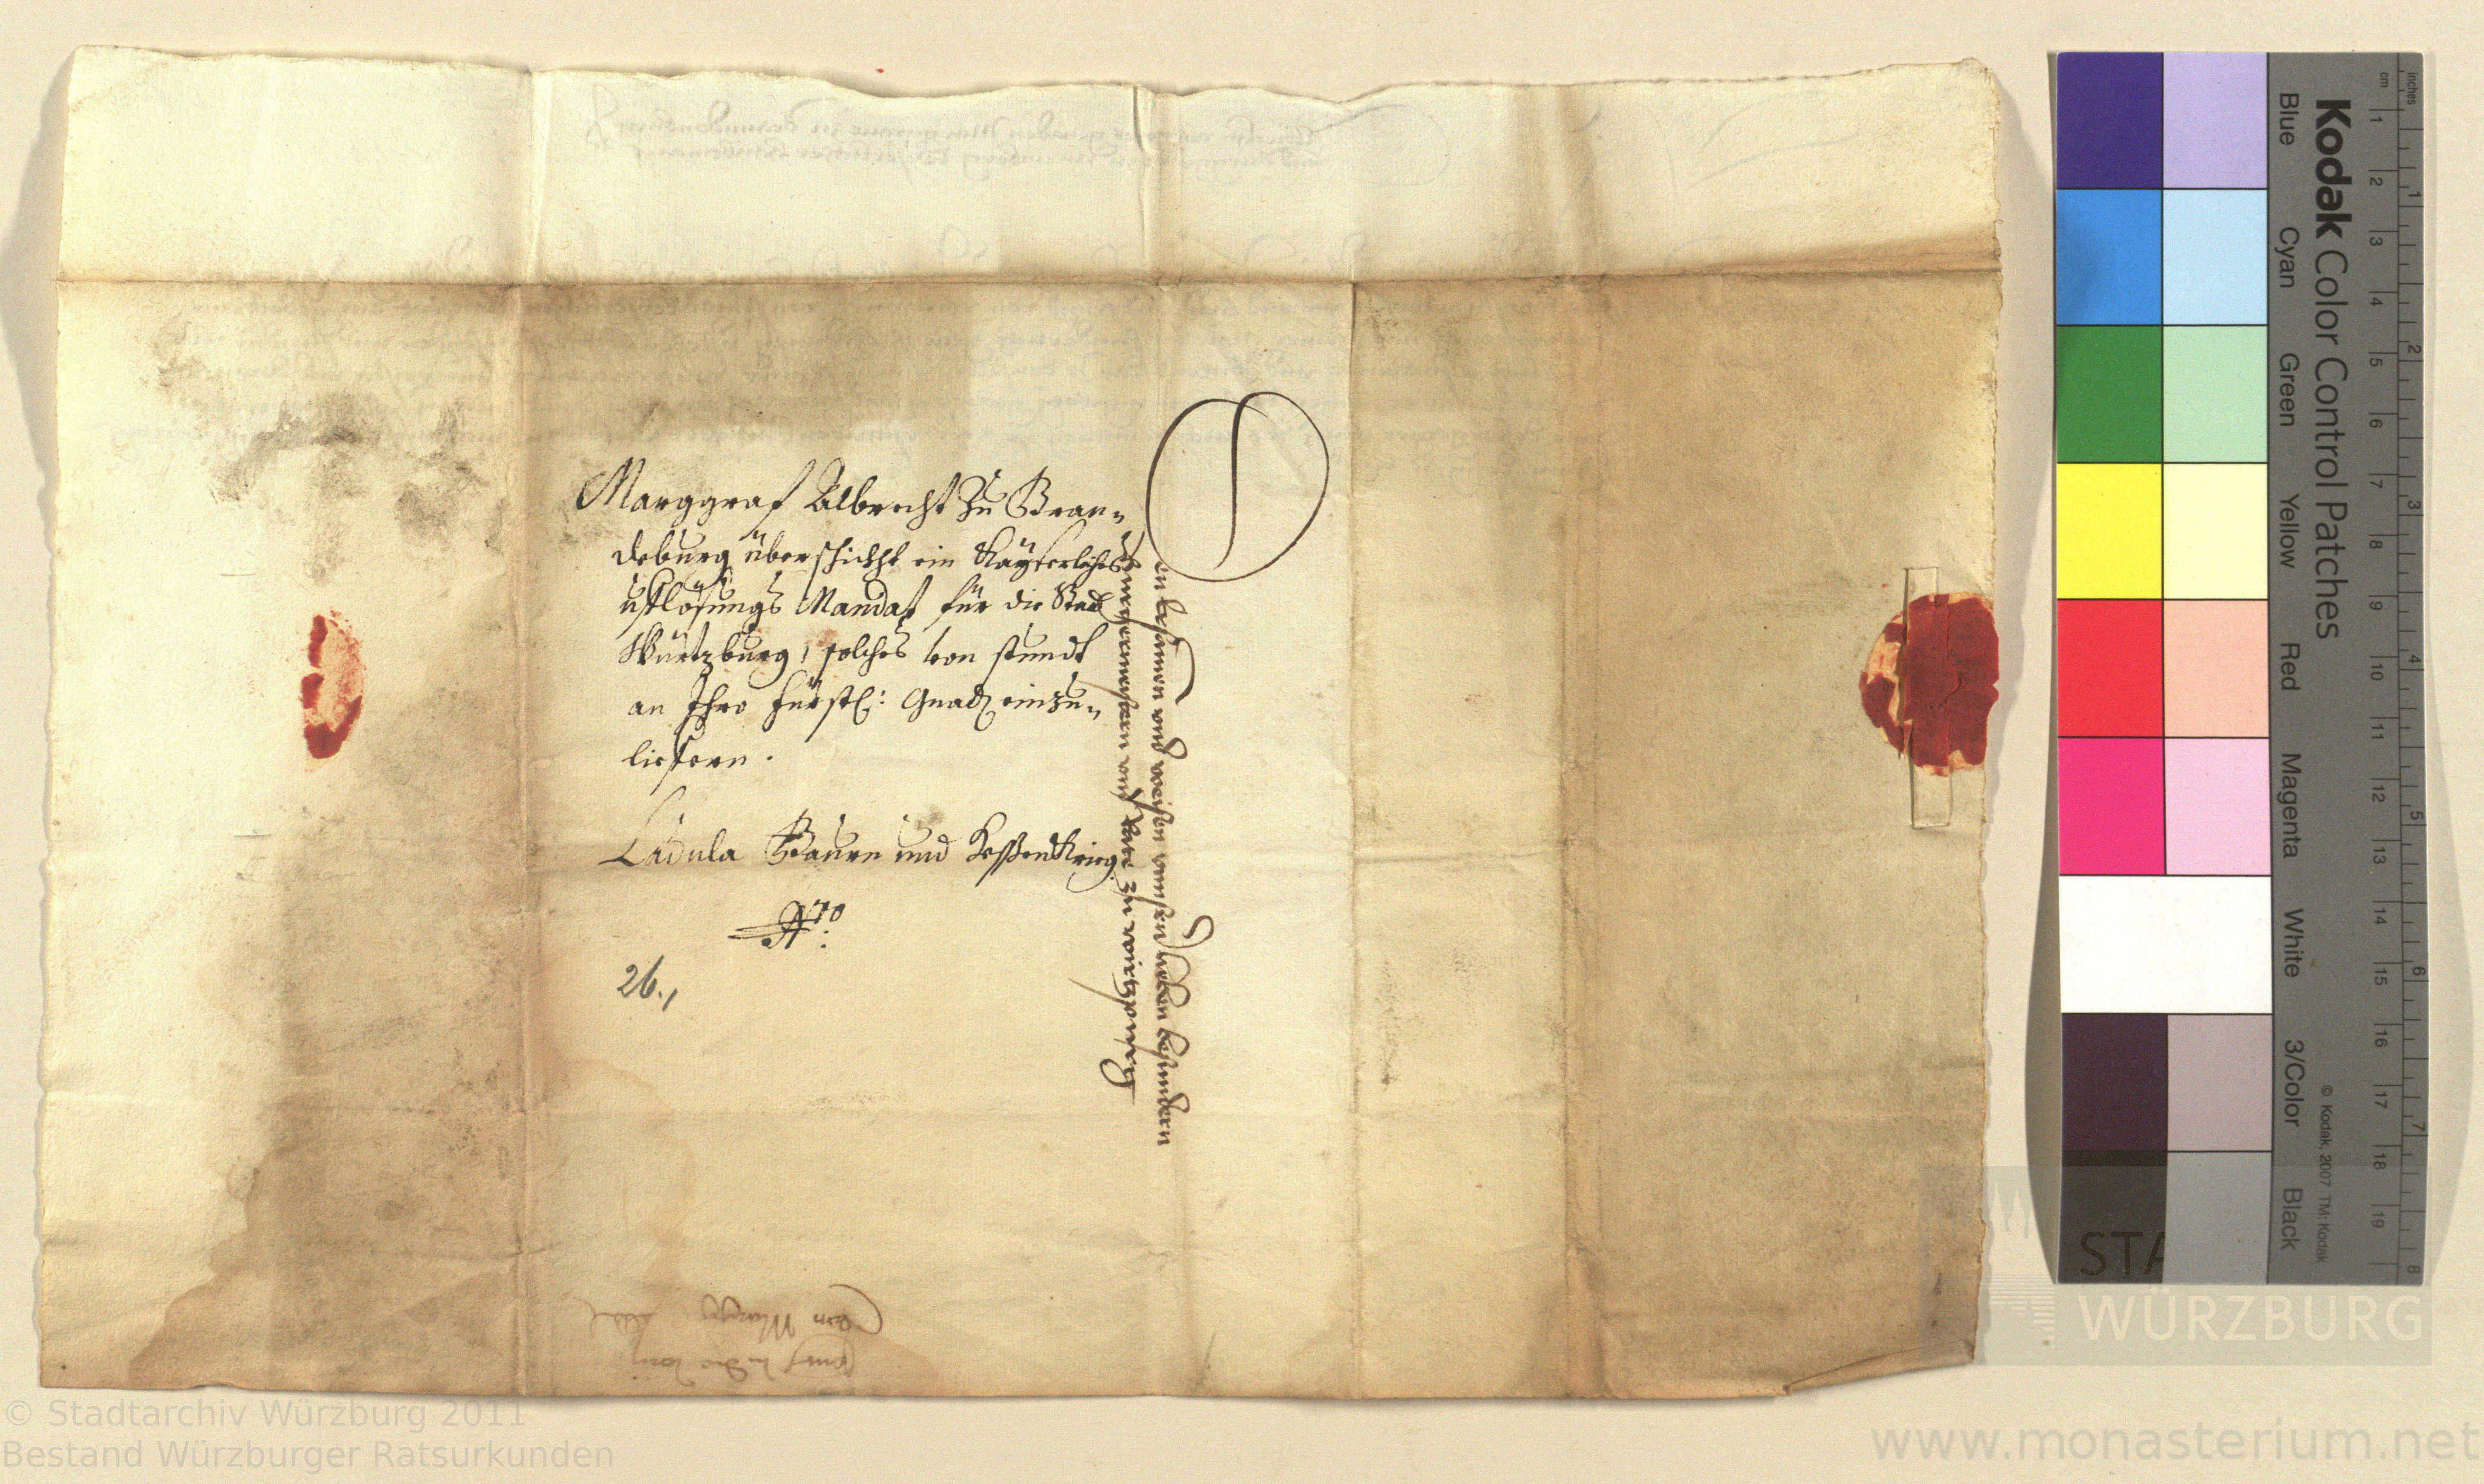 Marggraf Albrecht zu Bran-
deburg überschickht ein Kayserliches
ufflösungs Mandat für die Stad
Würtzburg, solches von stundt
an Ihro Fürstl: Gnad einzu-
liefern.
Ladula Bauren und Hessenkrieg
Nro:
26.,
Den ersamen und weisen unsern lieben besundern
Burgermeistern und Rate zu wirtzpurg
von Marggf
Kodak Color Control Patches
Blue Cyan Green Yellow Red Magenta White 3/Color Black
© Kodak, 2007 TM: Kodak
inches 1 2 3 4 5 6 7 8
cm 1 2 3 4 5 6 7 8 9 10 11 12 13 14 15 16 17 18 19
STA
WÜRZBURG
© Stadtarchiv Würzburg 2011
Bestand Würzburger Ratsurkunden
www.monasterium.net